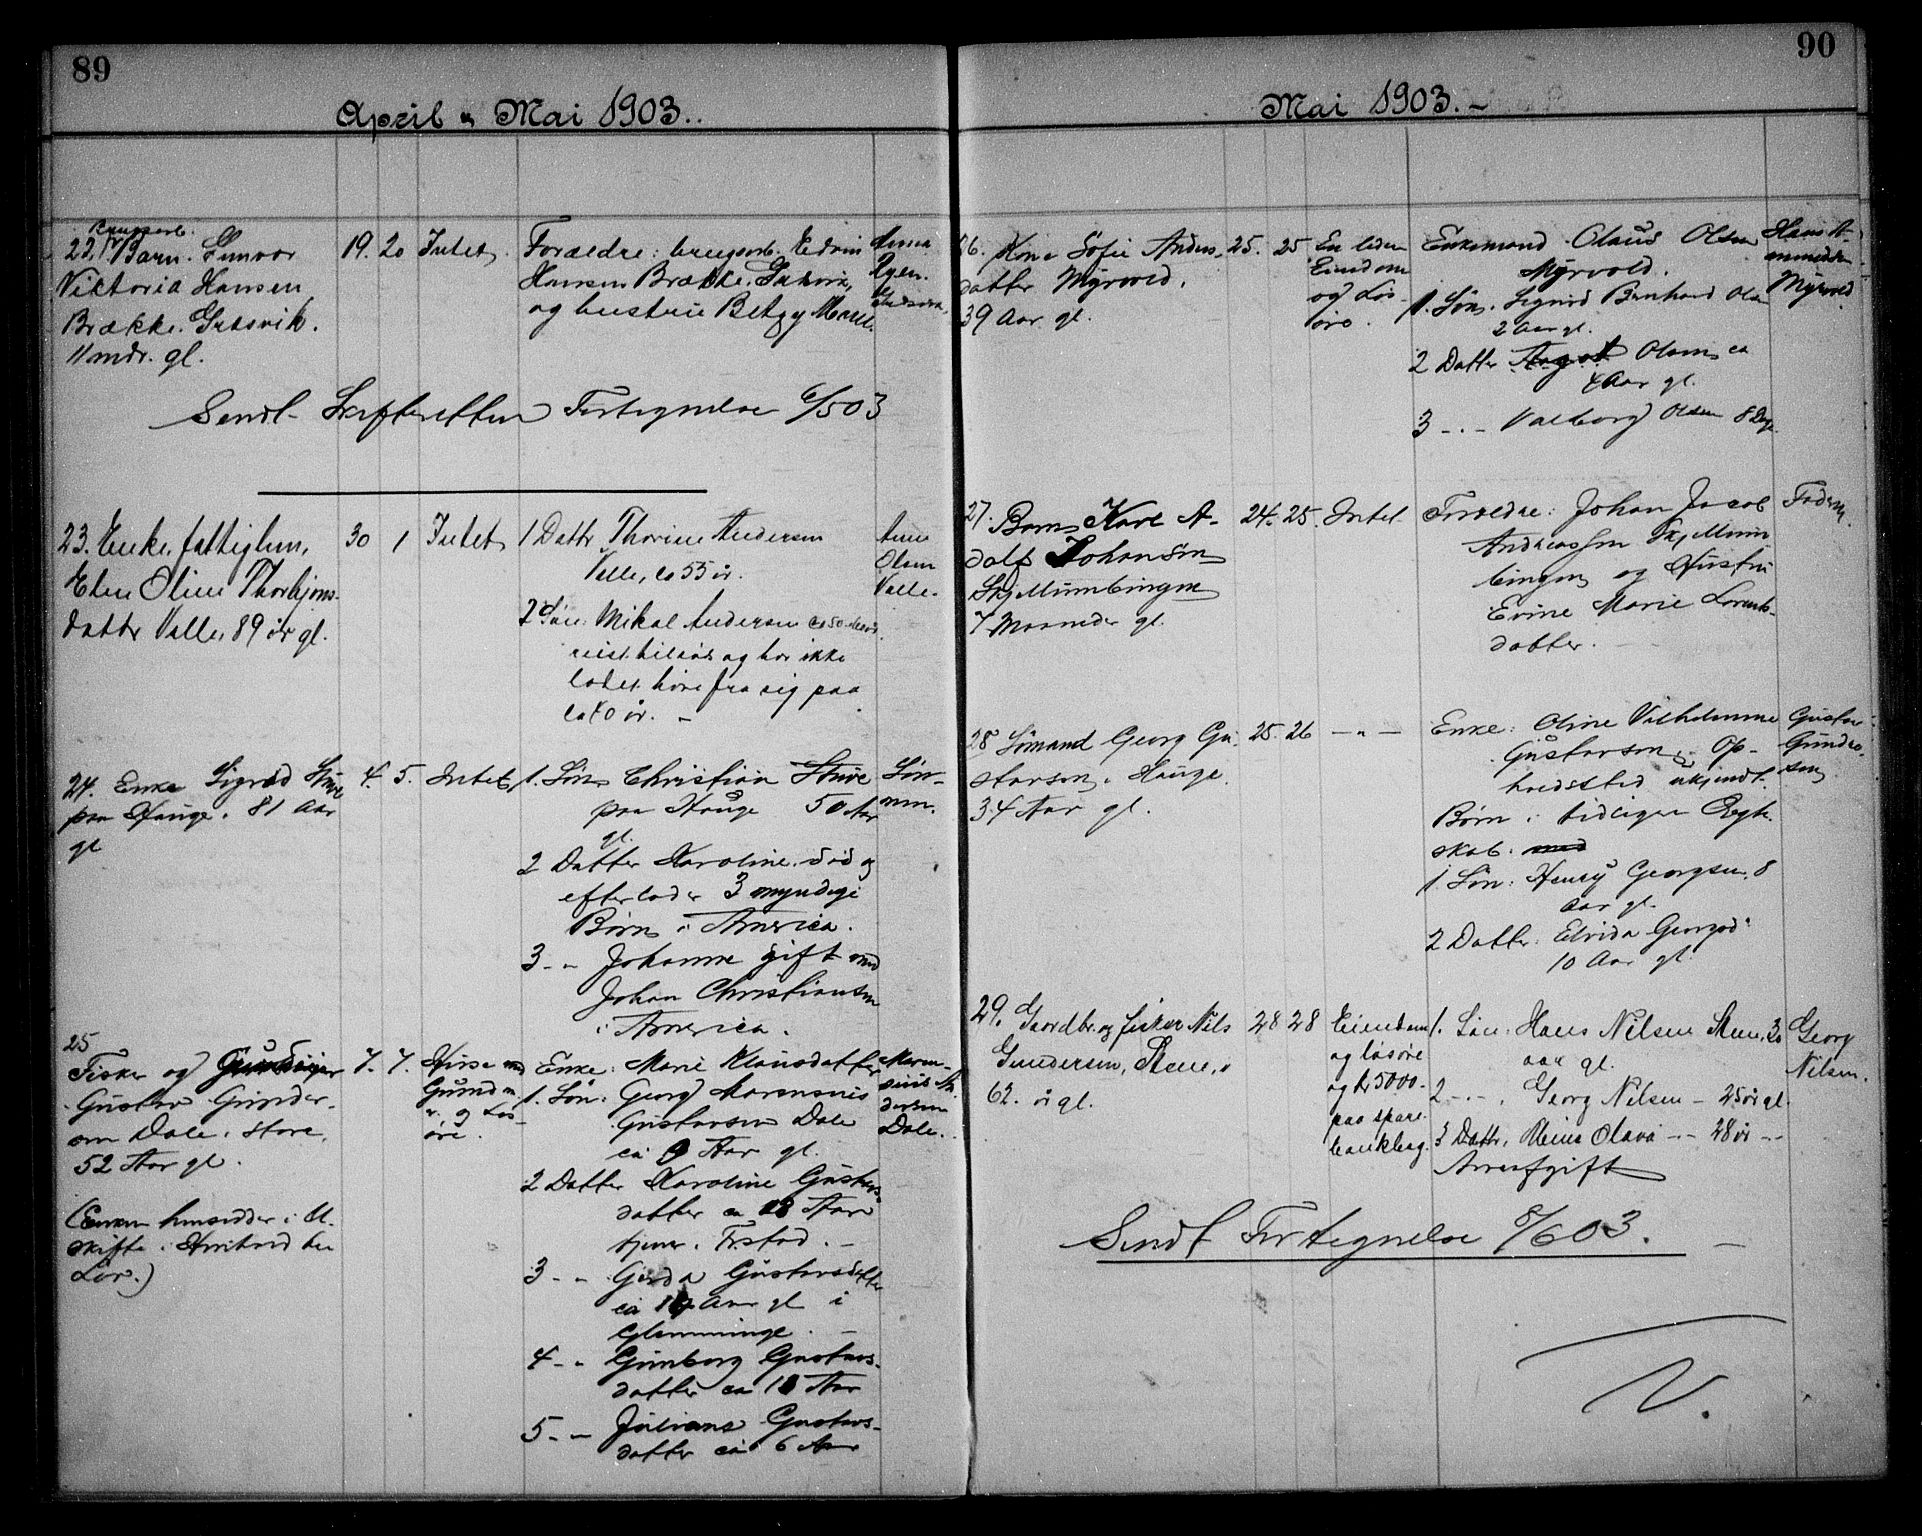 89
April & Mai 1903.
22. Barn. Gunvor
Viktoria Hansen
Brække. Græsvik.
11 mdr. gl.
19. 20 Intet
Forældre: brugsarb. Edvin
Hansen Brække. Græsvik,
og hustru Betzy Marie.
Anna
Sendt Skifteretten Fortegnelse 6/5 03
23. Enke, fattiglem,
Elen Oline Thorbjøns-
datter Valle, 89 år gl.
30 1 Intet
1 Datter Thorine Andersen
Valle, ca 55 år.
2 Søn: Mikal Andersen ca 50
reist tilsøs og har ikke
ladet høre fra sig paa
ca 10 år. -
Anne
Olsen
Valle.
24. Enke Sigrid Sture
paa Hauge. 81 Aar
gl
4. 5. Intet
1. Søn Christian Sture
paa Hauge 50 Aar
gl.
2 Datter Karoline. død og
efterlader 3 myndige
Børn i America.
3 - " Johanne gift med
Johan Christiansen
i America.
Søn-
nen.
25
Fisker og
Gustav Gunder-
sen Dale. Store,
52 Aar gl.
(Enken hensidder i U-
skifte i Henhold til
Lov.)
7. 7. Huse
Grund
og Løs-
øre.
Enke: Marie Klausdatter
1. Søn: Georg Marensius
Gustavsen Dale
ca 9 Aar gl.
2 Datter Karoline Gustavs-
datter ca 18 Aar
tjener i Fr.stad. -
3 - " Gerda Gustavsdatter
ca 14 Aar gl i
Glemminge. -
4 - " Gunborg Gustavs-
datter ca 11 Aar
5 - " Juliane Gustavs-
datter ca 6 Aar
Maren-
sius An-
dersen
Dale.
90
Mai 1903. -
26. Kone Sofie Anders-
datter Myrvold.
39 Aar gl.
25. 25 En liden
Eiendom
og Løs-
øre.
Enkemand Olaus Olsen
Myrvold.
1. Søn. Sigurd Bernhard Olsen
2 Aar gl.
2 Datter Aagot Olsen ca
4 Aar gl.
3 - . - Valborg Olsen 8 Dage
Hans A-
mundsen
Myrvold
27. Barn Karl A-
dolf Johansen
Skjellumbingen
7 Maaneder gl.
24. 25. Intet
Forældre: Johan Jacob
Andreassen Skjellum
bingen og Hustru
Evine Marie Lorents-
datter. -
Faderen.
28 Sømand Georg Gu-
stavson. Hauge.
34 Aar gl.
25. 26 - " -
Enke: Oline Vilhelmine
Gustavson. Op-
holdssted ukjendt.
Børn i tidligere Ægte-
skab. med
1. Søn: Henry Georgsen. 8
Aar gl.
2 Datter: Elvida Georgsd.
10 Aar gl.
Gustav
Gunder-
sen
29. Gaardbr. og fisker Nils
Gundersen, Stene,
62. år gl.
28 28 Eiendom
og løsøre
og kr 5000.-
paa spare-
bankbog.
1. Søn: Hans Nilsen Stene, 30
aar gl.
2 - . - Georg Nilsen - 25 år gl.
3 Datter, Olava - - 28 år - -
Arveafgift
Georg
Nilsen.
Sendt Fortegnelse 8/6 03. -